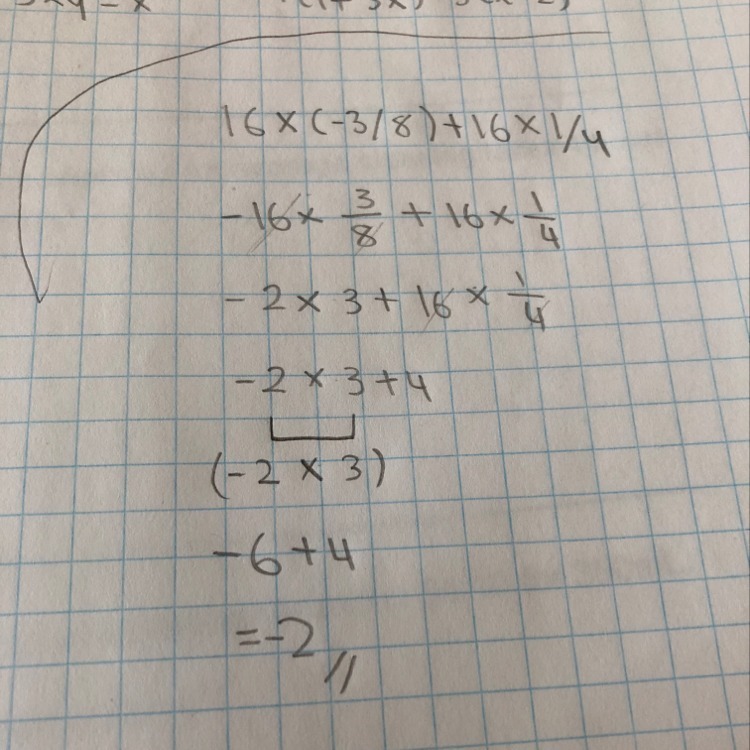 16 × (-3/8) + 16 × 1/4
-16 × 3/8 + 16 × 1/4
-2 × 3 + 16 × 1/4
-2 × 3 + 4
(-2 × 3)
-6 + 4
= -2 //